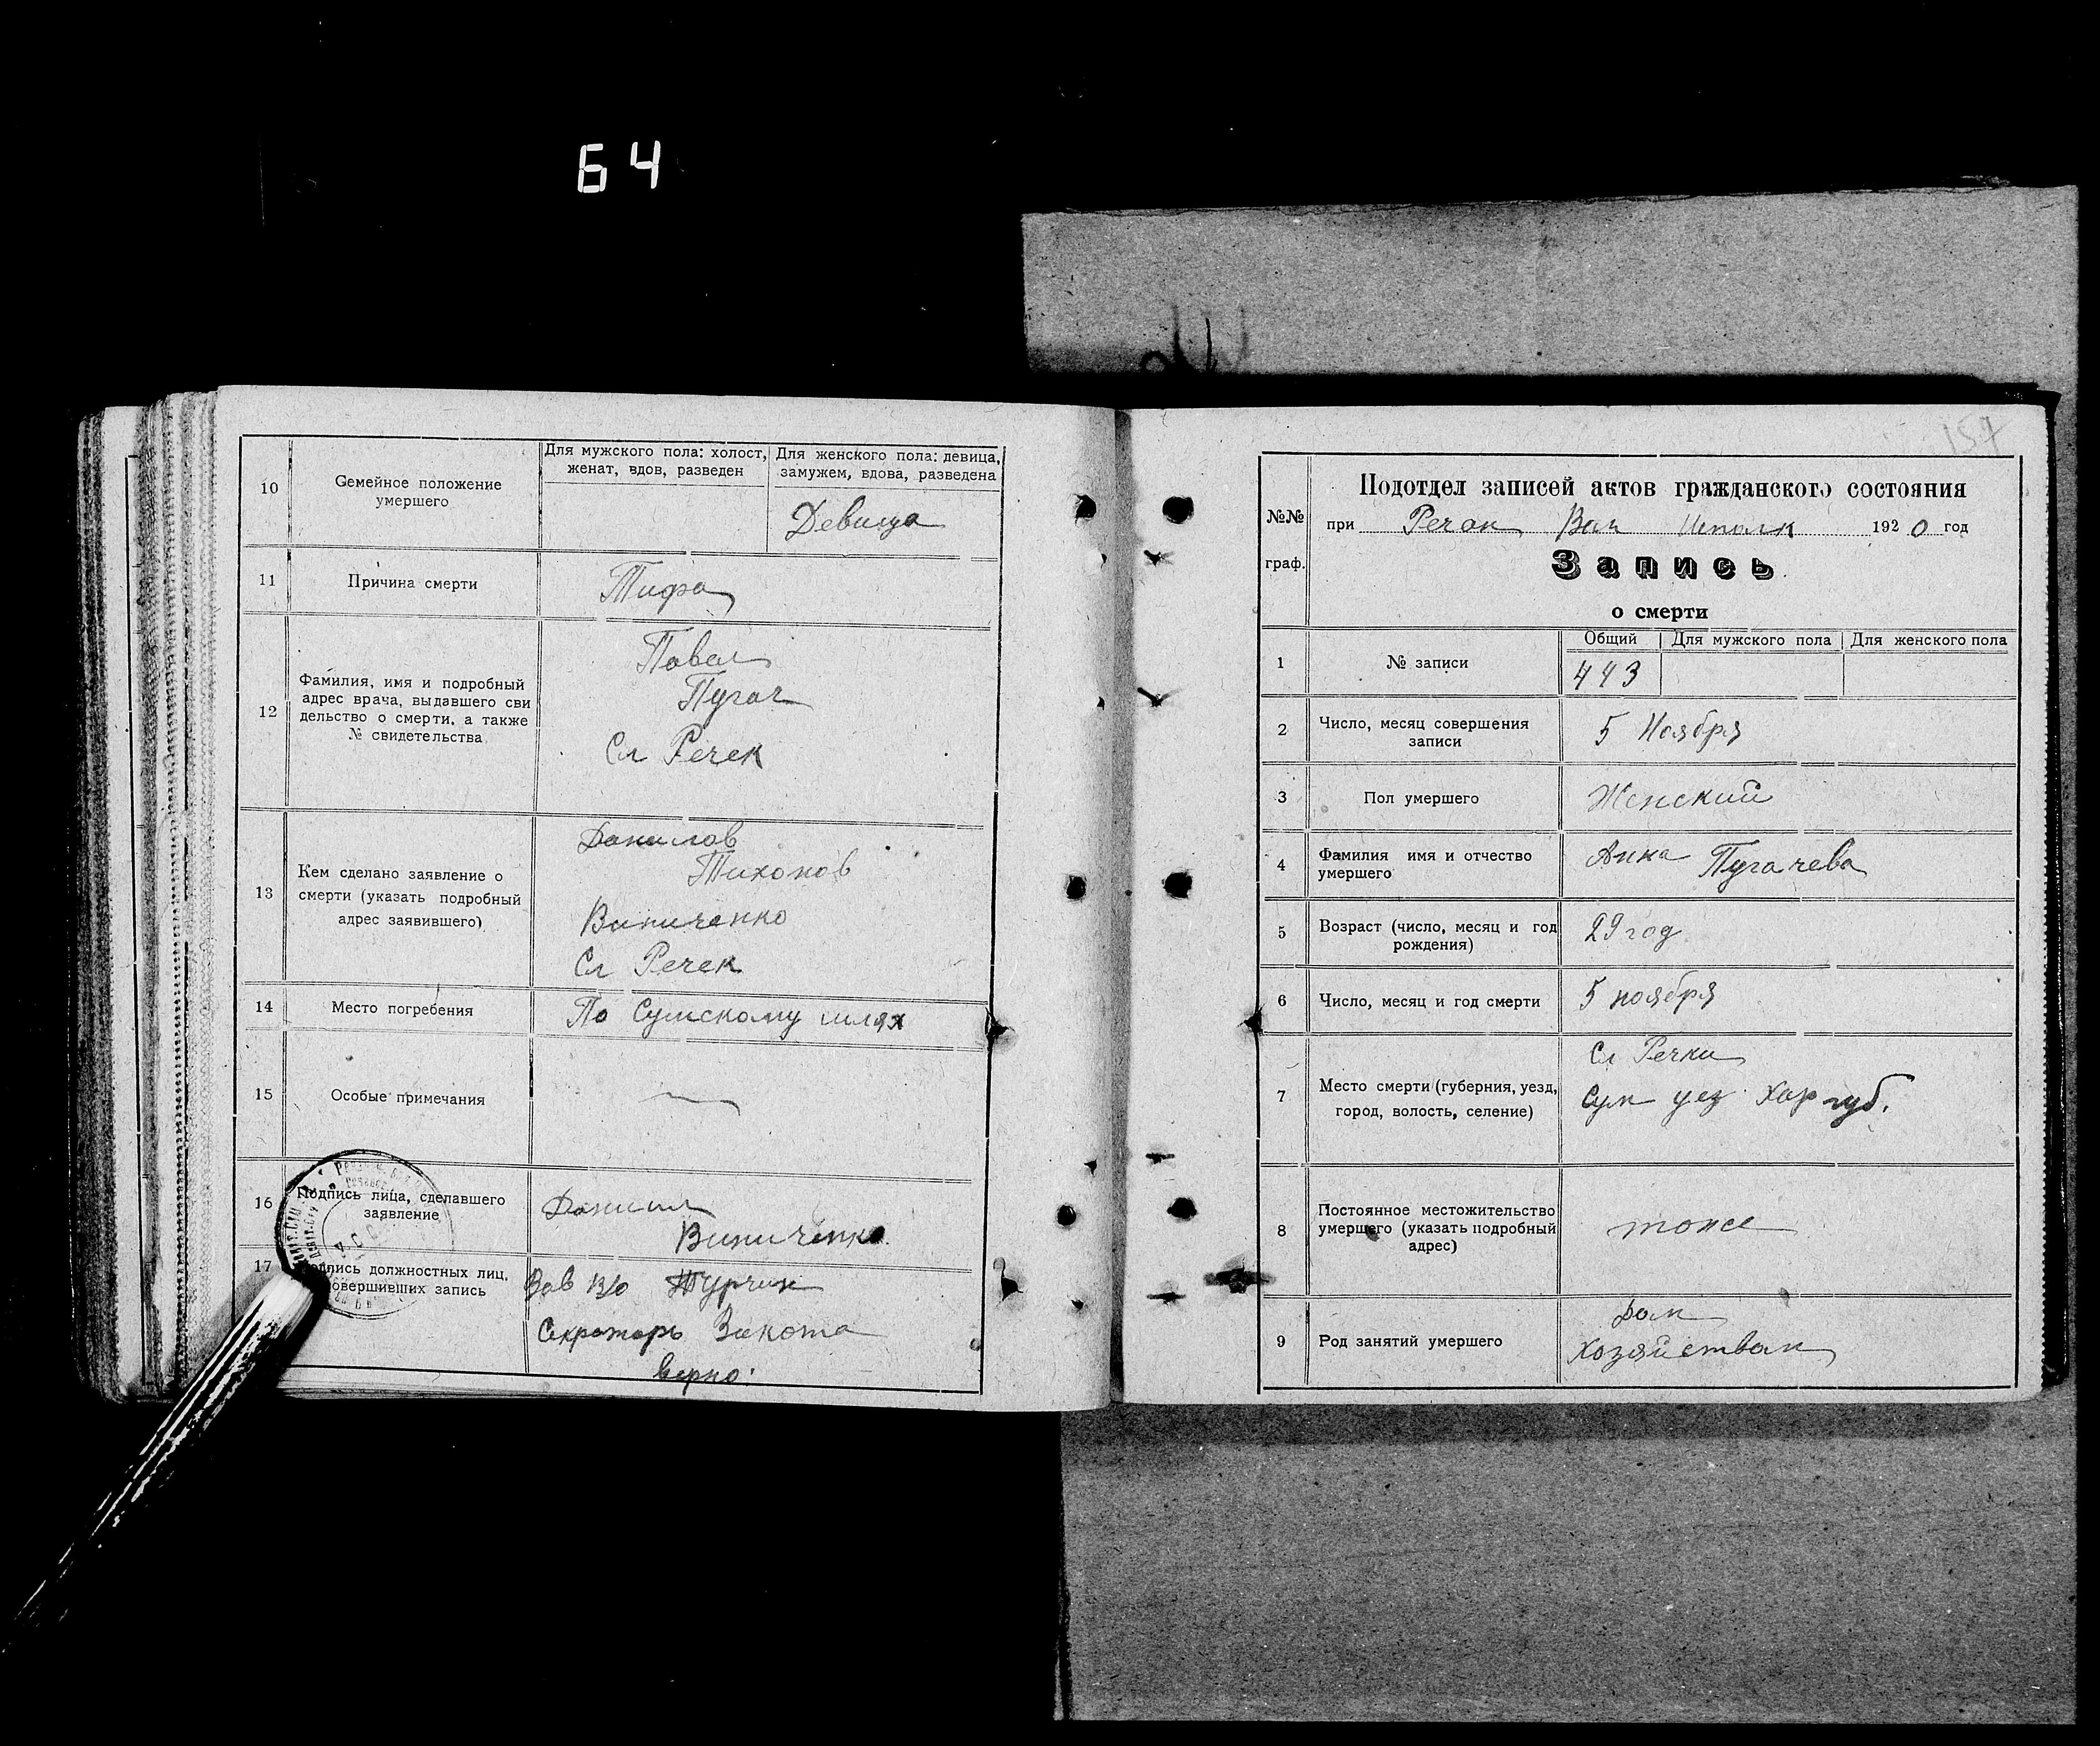 64
10
Семейное положение
умершего
Для мужского пола: холост,
женат, вдов, разведен
Для женского пола: девица,
замужем, вдова, разведена
Девица
11
Причина смерти
Тифа
12
Фамилия, имя и подробный
адрес врача, выдавшего сви
дельство о смерти, а также
№ свидетельства
Павел
Пугач
Сл Речек
13
Кем сделано заявление о
смерти (указать подробный
адрес заявившего)
Данилов
Тихонов
Виниченко
Сл Речек
14
Место погребения
По Сумскому шлях
15
Особые примечания
16
Подпись лица, сделавшего
заявление
Данил
Виниченко
17
должностных лиц,
совершивших запись
Зав
Секретарь
верно:
157
№№
граф.
Подотдел записей актов гражданского состояния
при Речан Вол 1920 год
Запись
о смерти
1
№ записи
Общий
Для мужского пола
Для женского пола
443
2
Число, месяц совершения
записи
5 Ноября
3
Пол умершего
Женский
4
Фамилия имя и отчество
умершего
Анна Пугачева
5
Возраст (число, месяц и год
рождения)
29 год
6
Число, месяц и год смерти
5 ноября
7
Место смерти (губерния, уезд,
город, волость, селение)
Сл Речки
Сум уез Хар губ.
8
Постоянное местожительство
умершего (указать подробный
адрес)
тоже
9
Род занятий умершего
Дом
хозяйствам